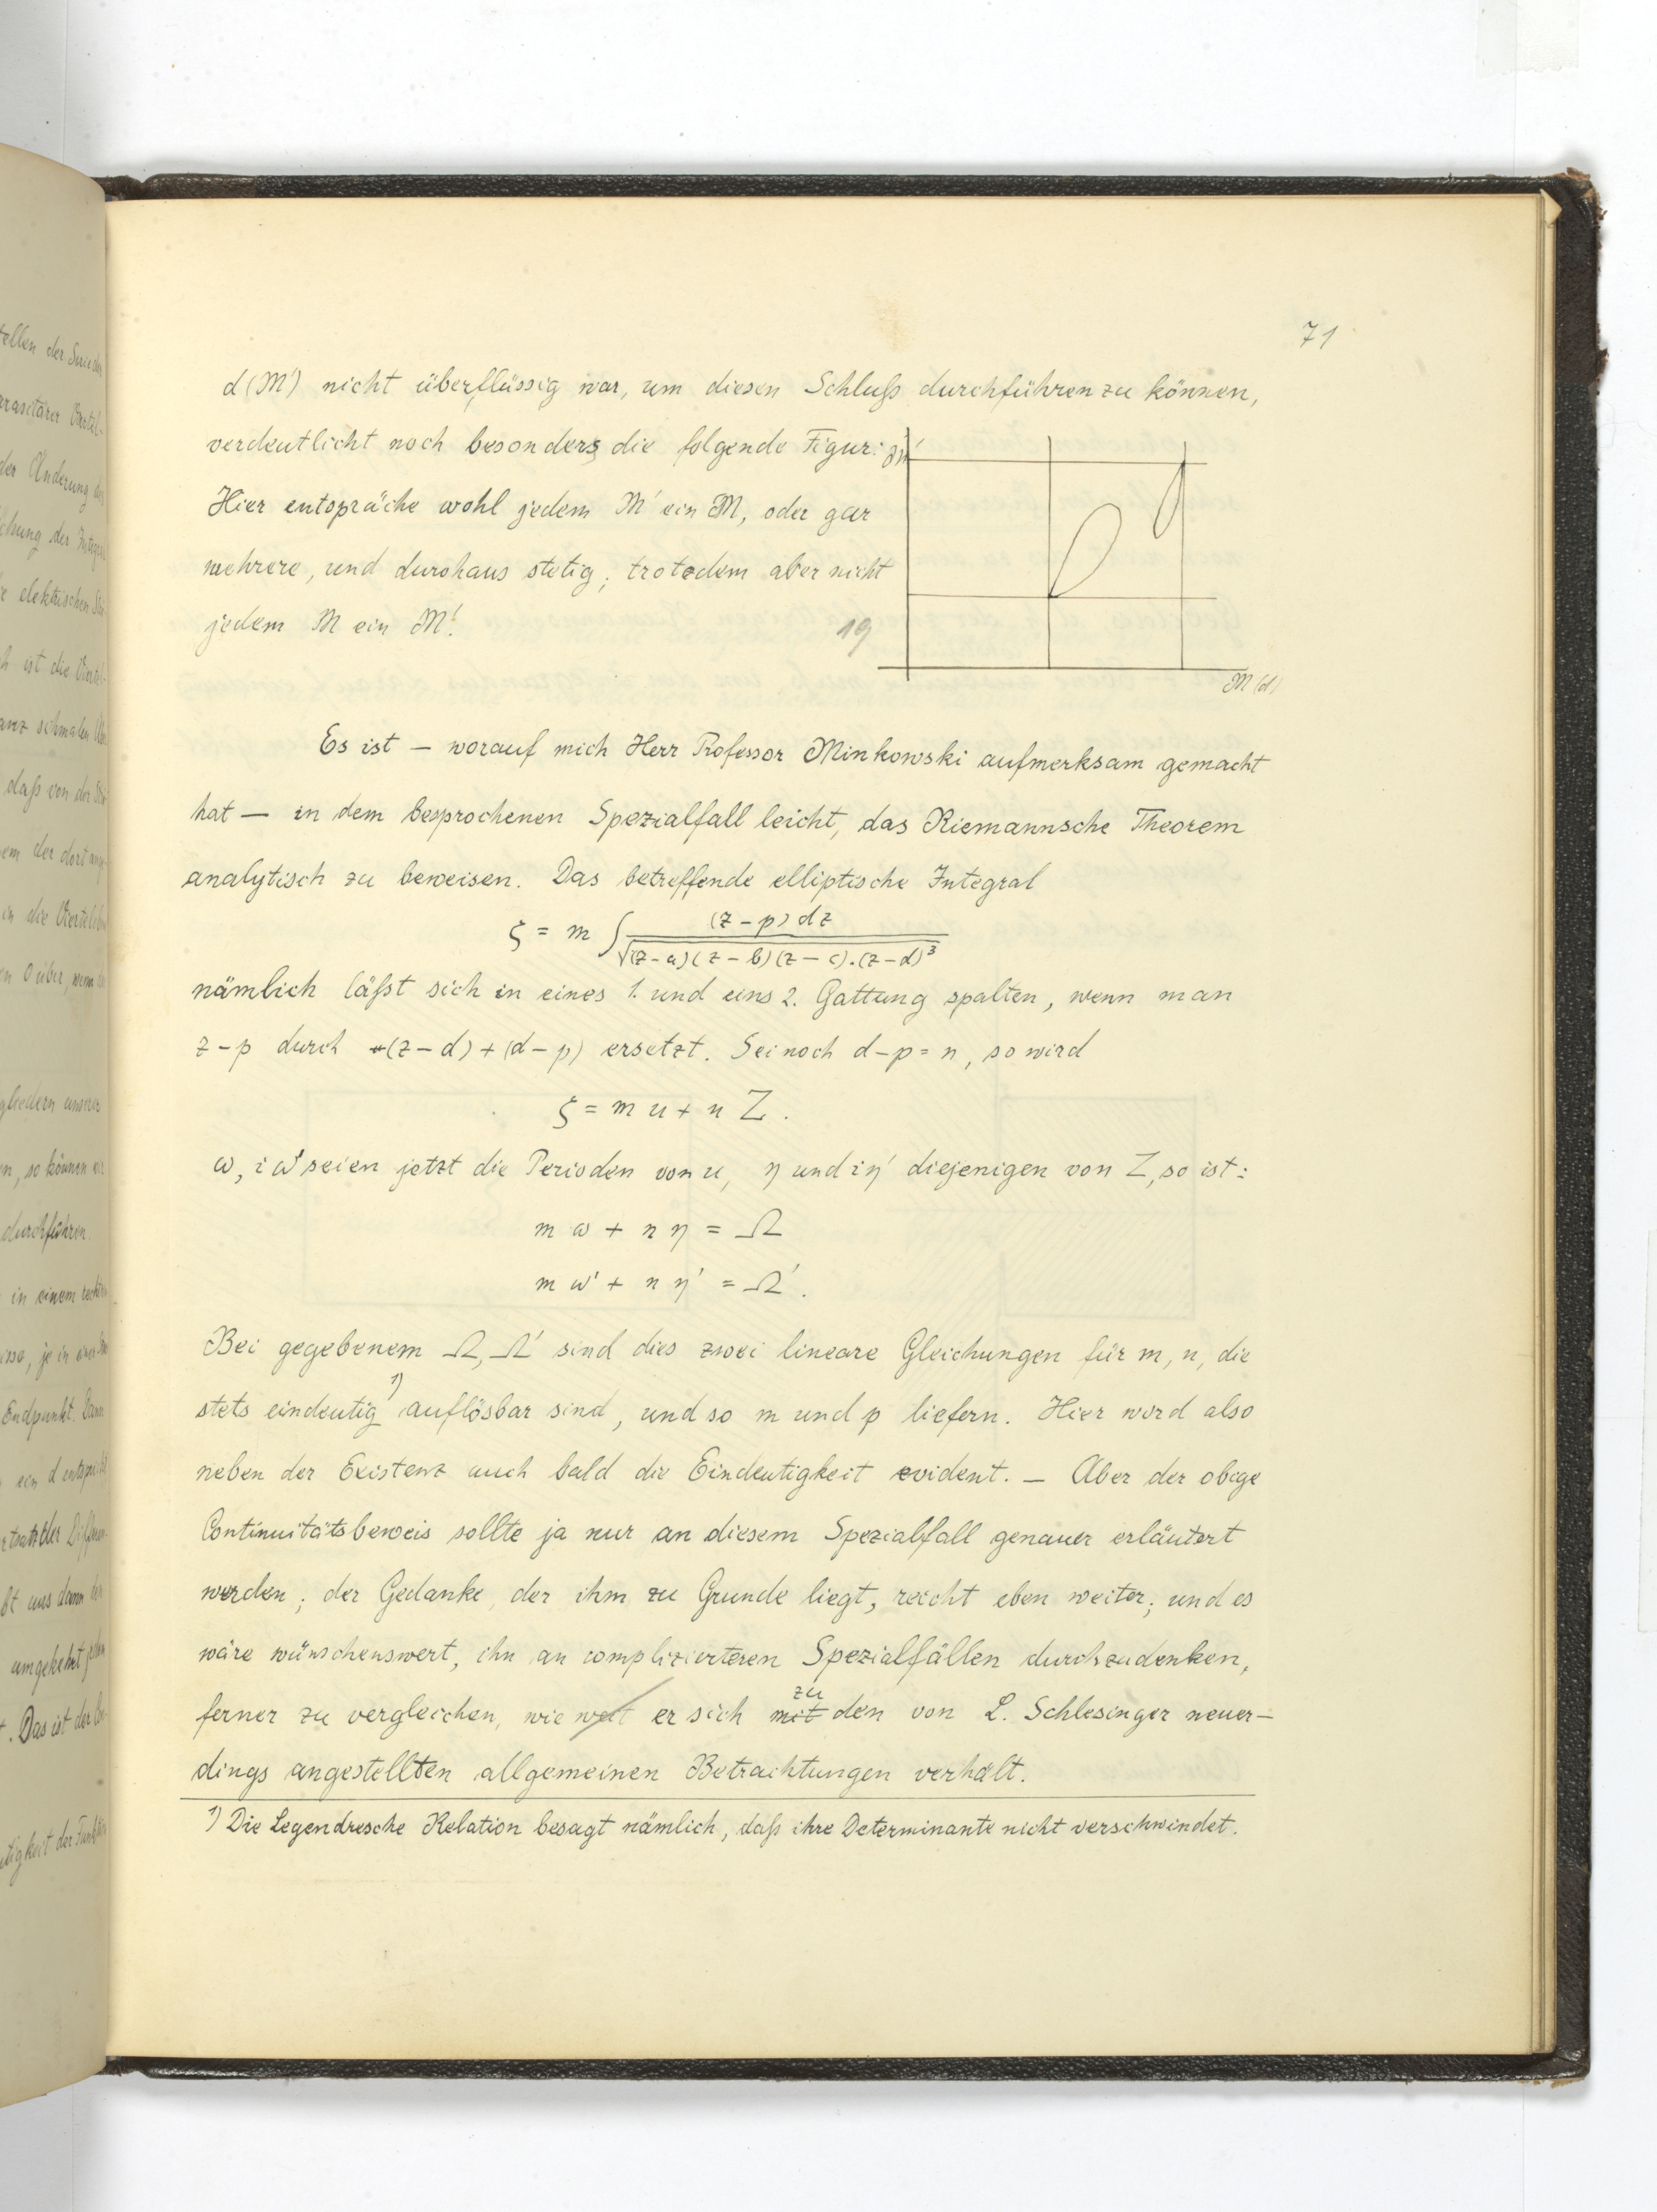 71
d(M') nicht überflüssig war, um diesen Schluß durchführen zu können,
verdeutlicht noch besonders die folgende Figur: M'
Hier entspräche wohl jedem M' ein M, oder gar
mehrere, und durchaus stetig; trotzdem aber nicht
jedem M ein M'.
19
M (d)
Es ist – worauf mich Herr Professor Minkowski aufmerksam gemacht
hat – in dem besprochenen Spezialfall leicht, das Riemannsche Theorem
analytisch zu beweisen. Das betreffende elliptische Integral
ζ = m ∫ (z-p) dz / √(z-a)(z-b)(z-c).(z-d)³
nämlich läßt sich in eines 1. und eins 2. Gattung spalten, wenn man
z-p durch (z-d)+(d-p) ersetzt. Sei noch d-p = n, so wird
ζ = m u + n Z.
ω, iω' seien jetzt die Perioden von u, η und iη' diejenigen von Z, so ist:
m ω + n η = Ω
m ω' + n η' = Ω'.
Bei gegebenem Ω, Ω' sind dies zwei lineare Gleichungen für m, n, die
stets eindeutig ¹⁾ auflösbar sind, und so m und p liefern. Hier wird also
neben der Existenz auch bald die Eindeutigkeit evident. – Aber der obige
Continuitätsbeweis sollte ja nur an diesem Spezialfall genauer erläutert
werden; der Gedanke, der ihm zu Grunde liegt, reicht eben weiter; und es
wäre wünschenswert, ihn an complizierteren Spezialfällen durchzudenken,
ferner zu vergleichen, wie weit er sich mit zu den von L. Schlesinger neuer-
dings angestellten allgemeinen Betrachtungen verhält.
¹⁾ Die Legendresche Relation besagt nämlich, daß ihre Determinante nicht verschwindet.